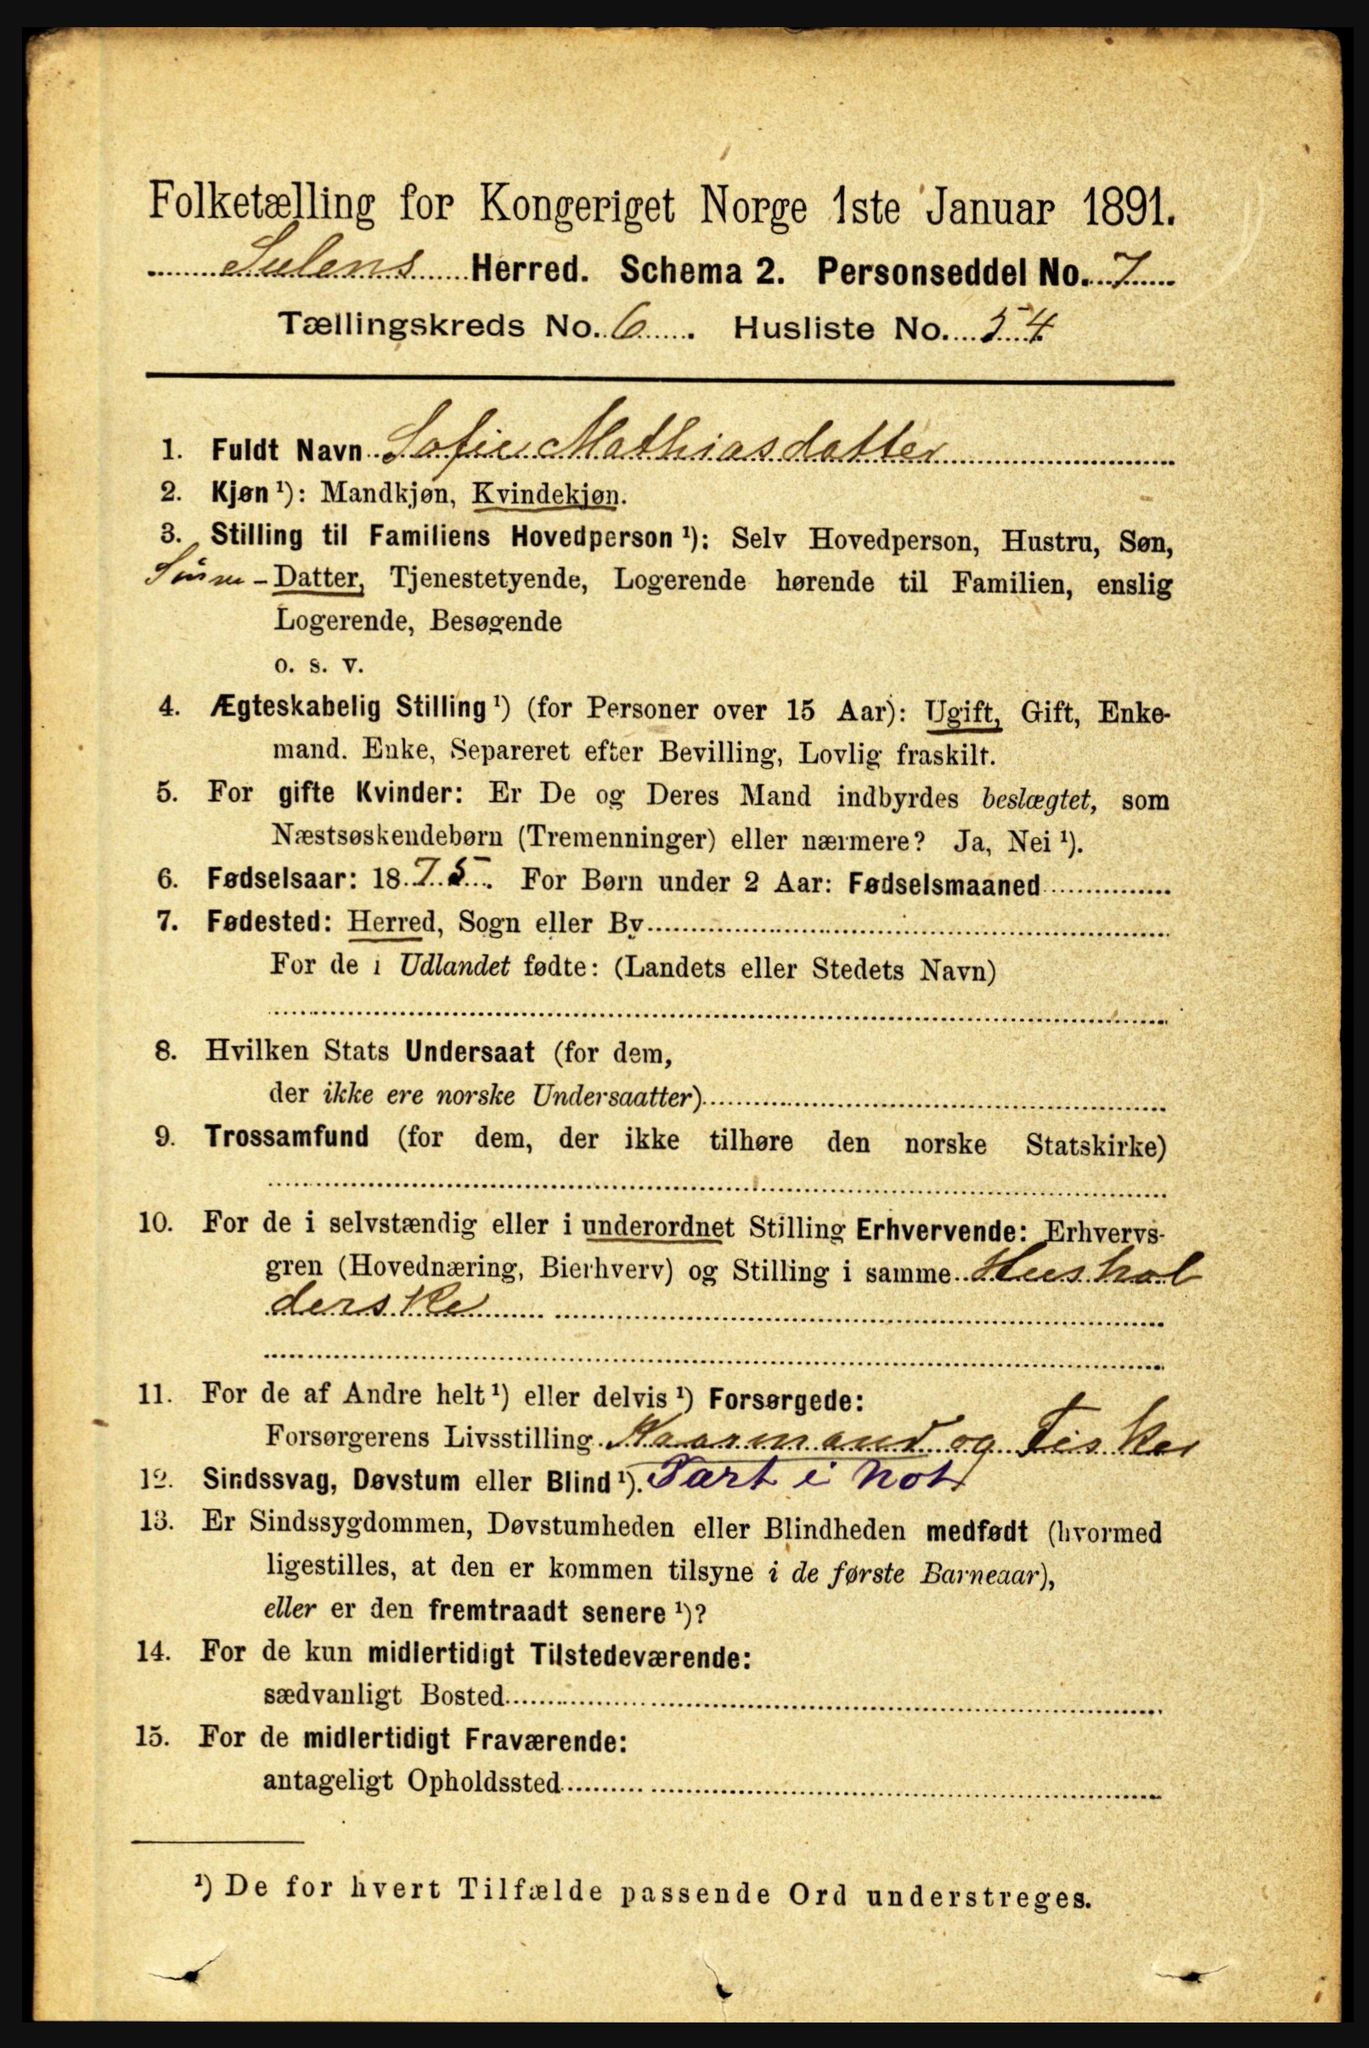 Folketælling for Kongeriget Norge 1ste Januar 1891.
Sulens Herred. Schema 2. Personseddel No. 7
Tællingskreds No. 6. Husliste No. 54
1. Fuldt Navn Sofie Mathiasdatter
2. Kjøn ¹): Mandkjøn, Kvindekjøn.
3. Stilling til Familiens Hovedperson ¹): Selv Hovedperson, Hustru, Søn,
Datter, Tjenestetyende, Logerende hørende til Familien, enslig
Logerende, Besøgende
o. s. v.
4. Ægteskabelig Stilling ¹) (for Personer over 15 Aar): Ugift, Gift, Enke-
mand. Enke, Separeret efter Bevilling, Lovlig fraskilt.
5. For gifte Kvinder: Er De og Deres Mand indbyrdes beslægtet, som
Næstsøskendebørn (Tremenninger) eller nærmere? Ja, Nei ¹).
6. Fødselsaar: 1875. For Børn under 2 Aar: Fødselsmaaned
7. Fødested: Herred, Sogn eller By
For de i Udlandet fødte: (Landets eller Stedets Navn)
8. Hvilken Stats Undersaat (for dem,
der ikke ere norske Undersaatter)
9. Trossamfund (for dem, der ikke tilhøre den norske Statskirke)
10. For de i selvstændig eller i underordnet Stilling Erhvervende: Erhvervs-
gren (Hovednæring, Bierhverv) og Stilling i samme Hushol
derske
11. For de af Andre helt ¹) eller delvis ¹) Forsørgede:
Forsørgerens Livsstilling Kaarmand og Fisker
12. Sindssvag, Døvstum eller Blind ¹). Part i Not
13. Er Sindssygdommen, Døvstumheden eller Blindheden medfødt (hvormed
ligestilles, at den er kommen tilsyne i de første Barneaar),
eller er den fremtraadt senere ¹)?
14. For de kun midlertidigt Tilstedeværende:
sædvanligt Bosted
15. For de midlertidigt Fraværende:
antageligt Opholdssted
¹) De for hvert Tilfælde passende Ord understreges.